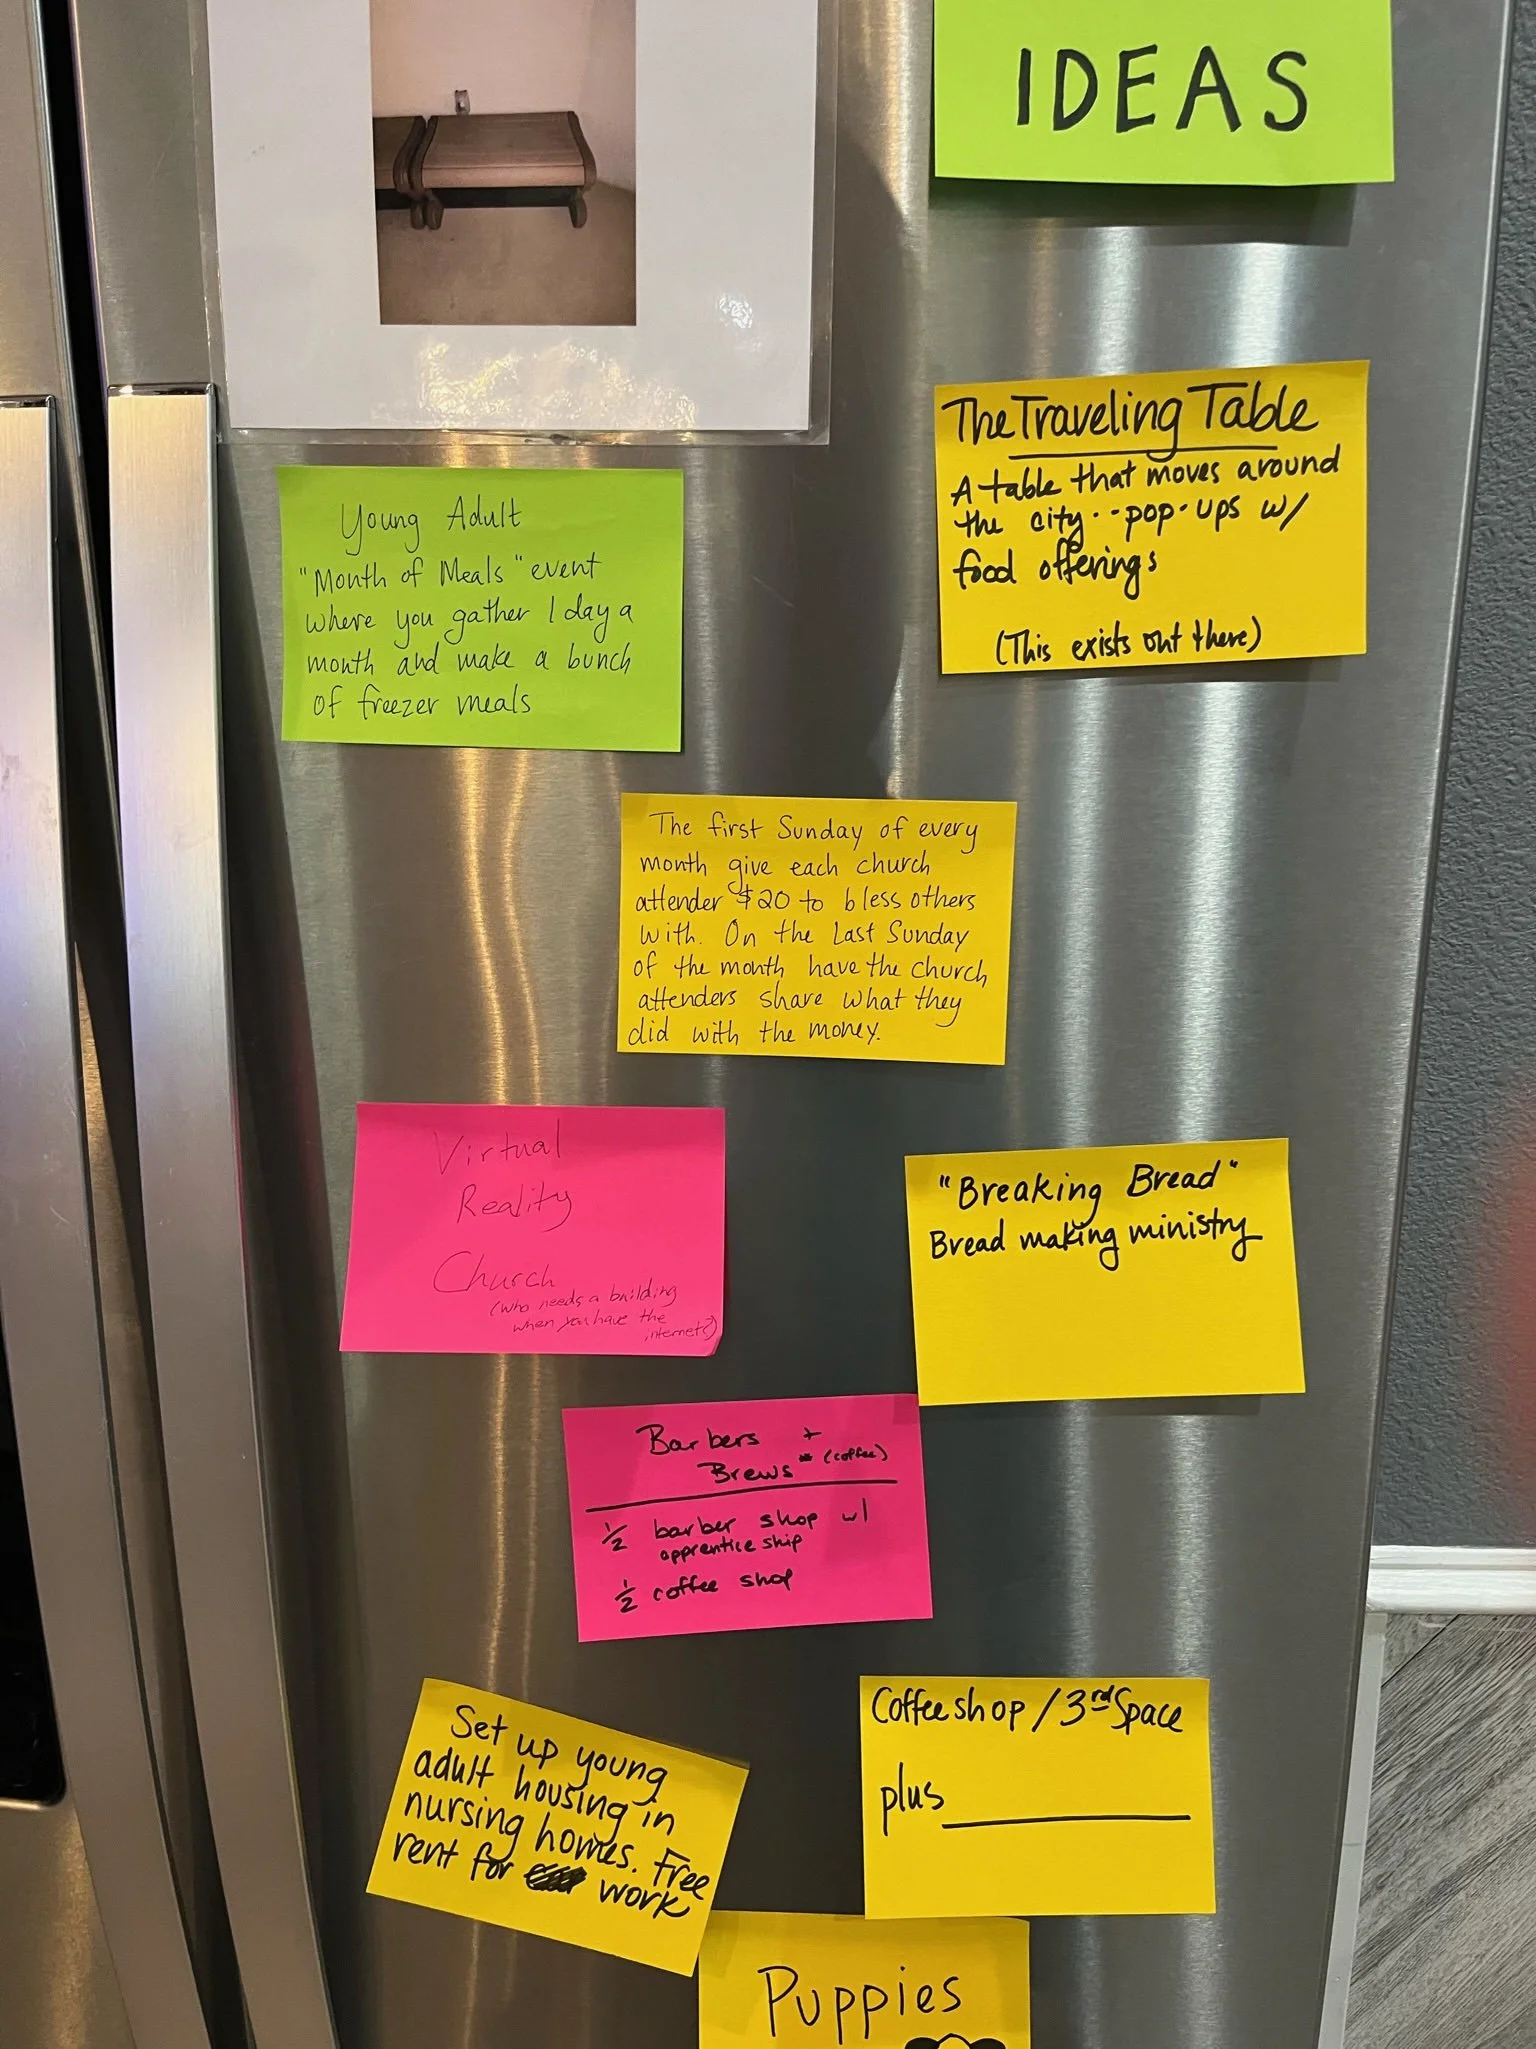 IDEAS
The Traveling Table
A table that moves around
the city -- pop-ups w/
food offerings
(This exists out there)
Young Adult
"Month of Meals" event
where you gather 1 day a
month and make a bunch
of freezer meals
The first Sunday of every
month give each church
attender $20 to bless others
with. On the Last Sunday
of the month have the church
attenders share what they
did with the money.
Virtual
Reality
Church
(who needs a building
when you have the
internets?)
"Breaking Bread"
Bread making ministry
Barbers +
Brews * (coffee)
1/2 barber shop w/
apprenticeship
1/2 coffee shop
Set up young
adult housing in
nursing homes. Free
rent for work
Coffeeshop / 3rd Space
plus
Puppies